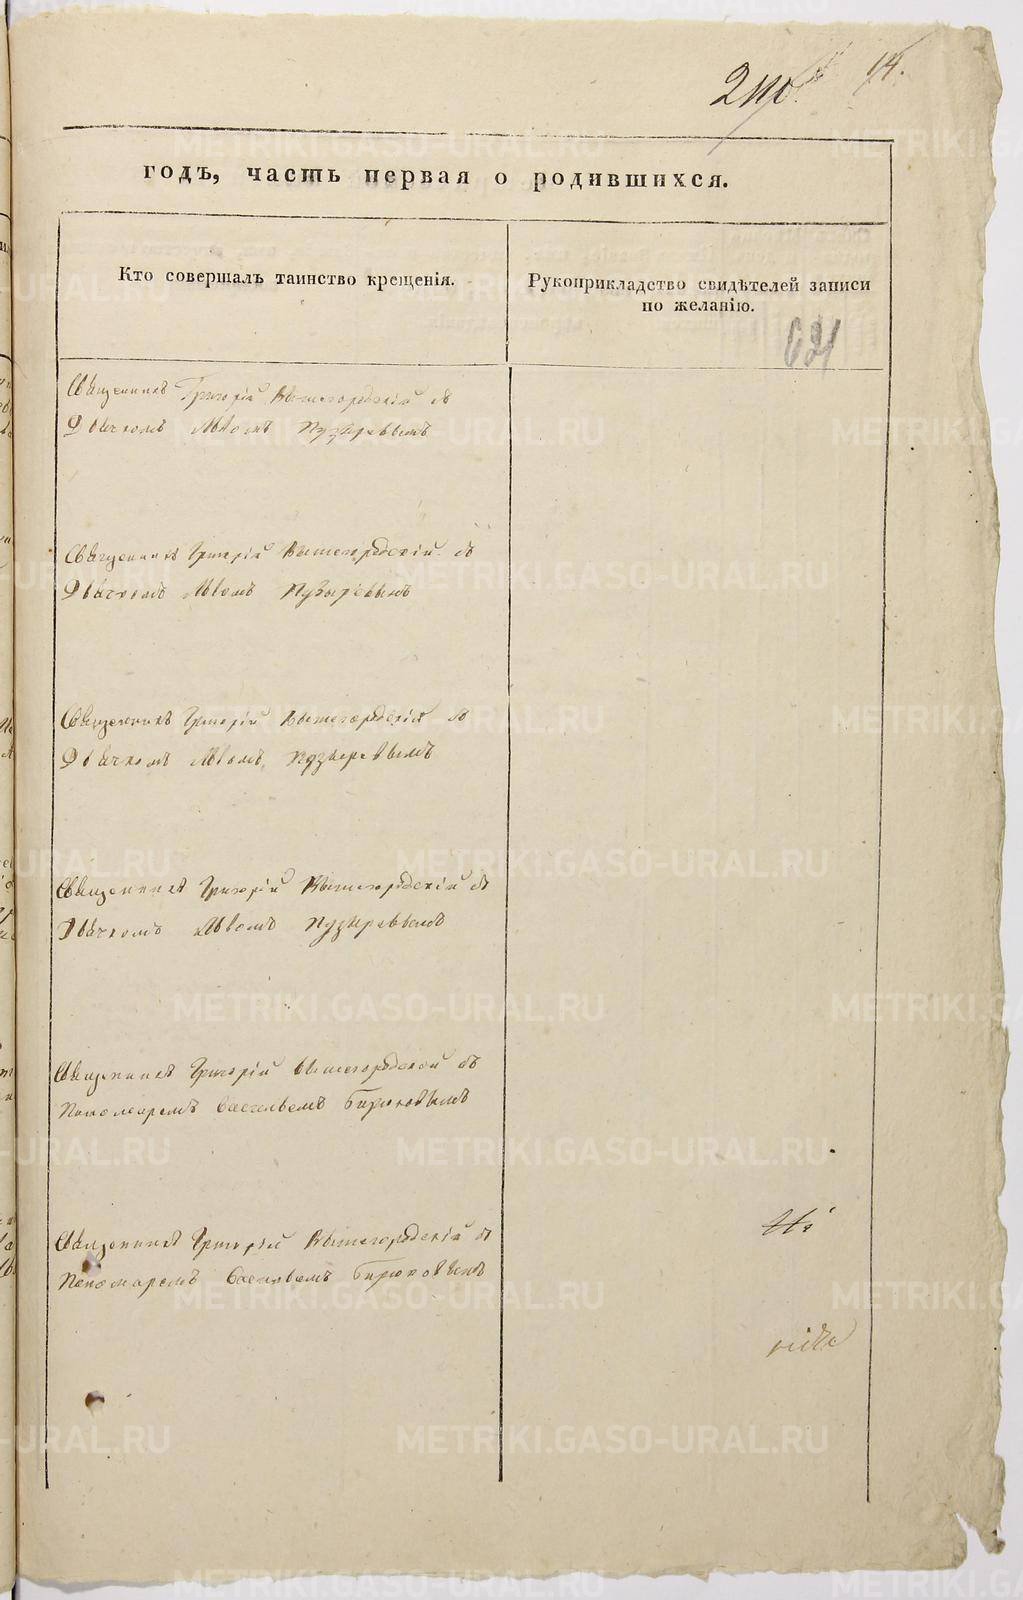 14.
годъ, часть первая о родившихся.
Кто совершалъ таинство крещенія.
Рукоприкладство свидѣтелей записи
по желанію.
621
Священникъ Григорій Вышегородскій съ
Дьячкомъ Львомъ Пузыревымъ
Священникъ Григорій Вышегородскій съ
Дьячкомъ Львомъ Пузыревымъ
Священникъ Григорій Вышегородскій съ
Дьячкомъ Львомъ Пузыревымъ
Священникъ Григорій Вышегородскій съ
Дьячкомъ Львомъ Пузыревымъ
Священникъ Григорій Вышегородской съ
Пономаремъ Васильемъ Бирюковымъ
Священникъ Григорій Вышегородскій съ
Пономаремъ Васильемъ Бирюковымъ
METRIKI.GASO-URAL.RU